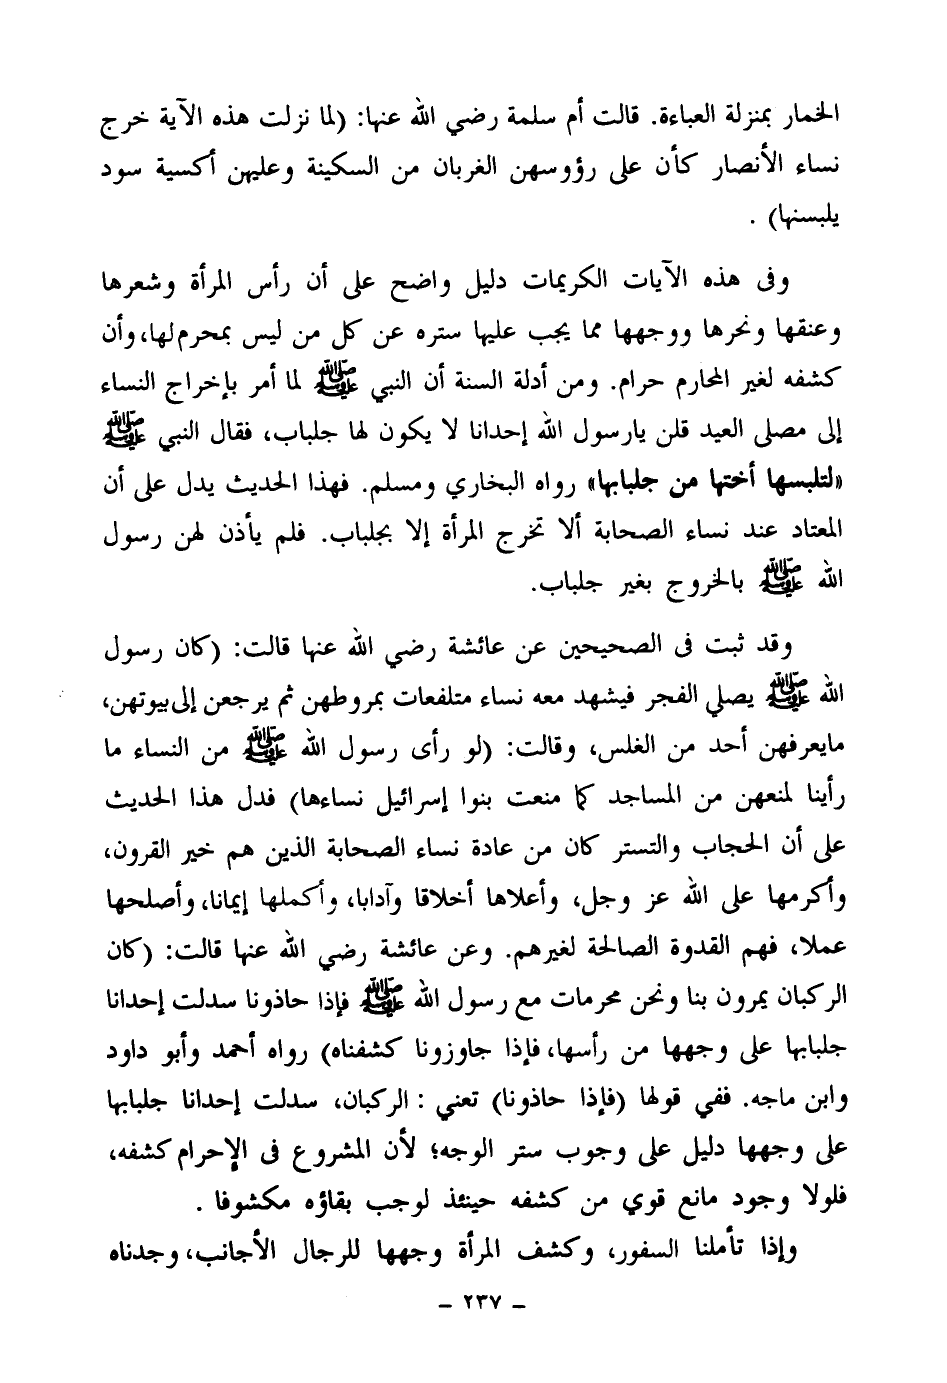 الخمار بمنزلة العباءة. قالت أم سلمة رضي الله عنها: (لما نزلت هذه الآية خرج
نساء الأنصار كأن على رؤوسهن الغربان من السكينة وعليهن أكسية سود
يلبسنها) .
وفى هذه الآيات الكريمات دليل واضح على أن رأس المرأة وشعرها
وعنقها ونحرها ووجهها مما يجب عليها ستره عن كل من ليس بمحرم لها، وأن
كشفه لغير المحارم حرام. ومن أدلة السنة أن النبي ﷺ لما أمر بإخراج النساء
إلى مصلى العيد قلن يارسول الله إحدانا لا يكون لها جلباب، فقال النبي ﷺ
«لتلبسها أختها من جلبابها» رواه البخاري ومسلم. فهذا الحديث يدل على أن
المعتاد عند نساء الصحابة ألا تخرج المرأة إلا بجلباب. فلم يأذن لهن رسول
الله ﷺ بالخروج بغير جلباب.
وقد ثبت فى الصحيحين عن عائشة رضي الله عنها قالت: (كان رسول
الله ﷺ يصلي الفجر فيشهد معه نساء متلفعات بمروطهن ثم يرجعن إلى بيوتهن،
مايعرفهن أحد من الغلس، وقالت: (لو رأى رسول الله ﷺ من النساء ما
رأينا لمنعهن من المساجد كما منعت بنوا إسرائيل نساءها) فدل هذا الحديث
على أن الحجاب والتستر كان من عادة نساء الصحابة الذين هم خير القرون،
وأكرمها على الله عز وجل، وأعلاها أخلاقا وآدابا، وأكملها إيمانا، وأصلحها
عملا، فهم القدوة الصالحة لغيرهم. وعن عائشة رضي الله عنها قالت: (كان
الركبان يمرون بنا ونحن محرمات مع رسول الله ﷺ فإذا حاذونا سدلت إحدانا
جلبابها على وجهها من رأسها، فإذا جاوزونا كشفناه) رواه أحمد وأبو داود
وابن ماجه. ففي قولها (فإذا حاذونا) تعني : الركبان، سدلت إحدانا جلبابها
على وجهها دليل على وجوب ستر الوجه؛ لأن المشروع فى الإحرام كشفه،
فلولا وجود مانع قوي من كشفه حينئذ لوجب بقاؤه مكشوفا .
وإذا تأملنا السفور، وكشف المرأة وجهها للرجال الأجانب، وجدناه
- ٢٣٧ -